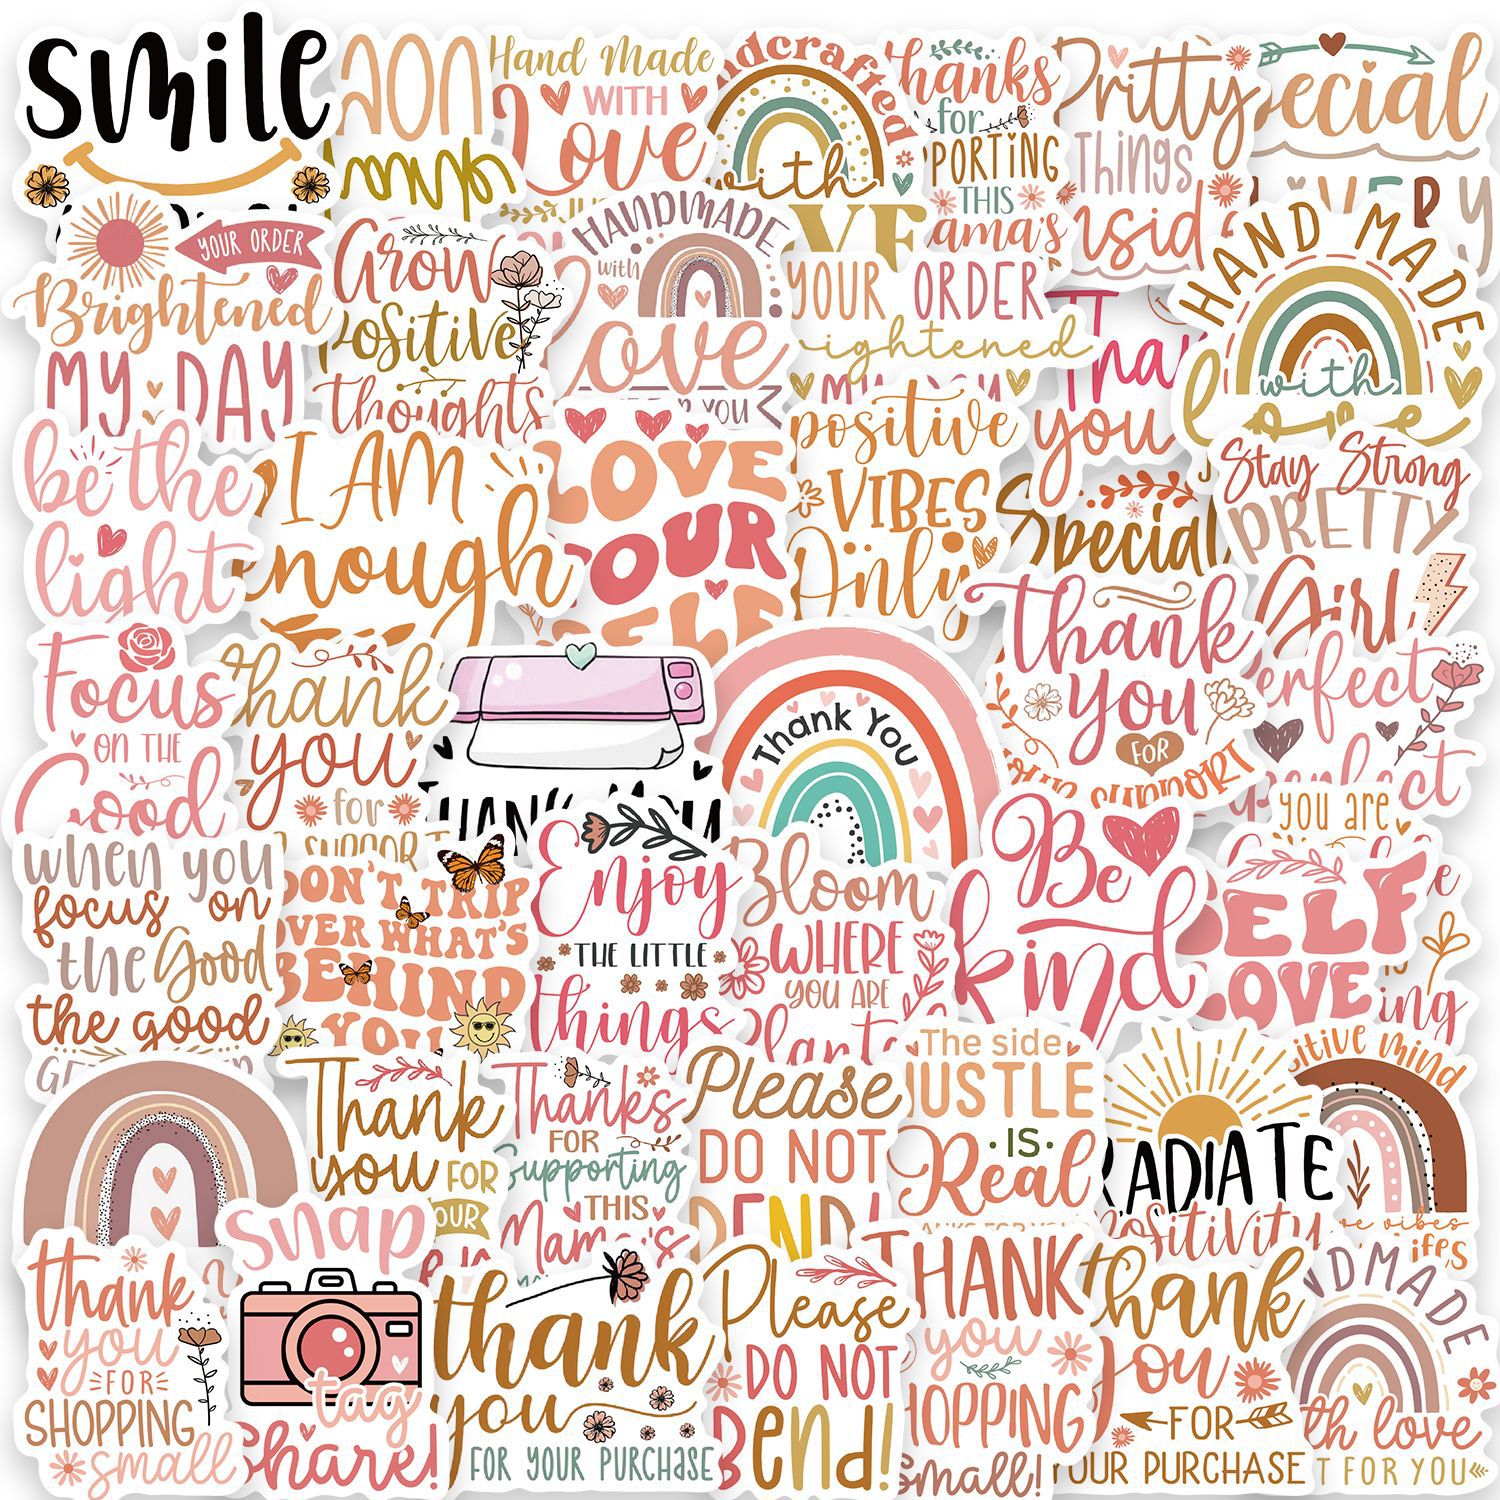 smile
Hand Made
WITH
Love
with
thanks
for
THIS
Pritty
Things
YOUR ORDER
Brightened
MY DAY
Grow
Positive
thoughts
HANDMADE
with
Love
YOUR ORDER
you
HAND MADE
with
love
be the
light
I AM
enough
LOVE
YOUR
SELF
positive
VIBES
Only
Special
Stay Strong
PRETTY
Girl
Focus
ON THE
Good
thank
you
for
THANK YOU
Thank You
thank
you
FOR
YOUR SUPPORT
perfect
you are
when you
focus on
the Good
the good
DON'T TRIP
OVER WHAT'S
BEHIND
YOU
Enjoy
THE LITTLE
things
Bloom
WHERE
YOU ARE
Be
kind
SELF
LOVE
Thank
you FOR
YOUR
Thanks
FOR
Supporting
THIS
Mama's
Please
DO NOT
BEND!
The side
HUSTLE
IS
Real
RADIATE
Positivity
positive mind
thank
you
FOR
SHOPPING
small
snap
tag
Share!
thank
you
FOR YOUR PURCHASE
Please
DO NOT
Bend!
THANK
you
SHOPPING
small!
thank
you
FOR
YOUR PURCHASE
HANDMADE
with love
JUST FOR YOU